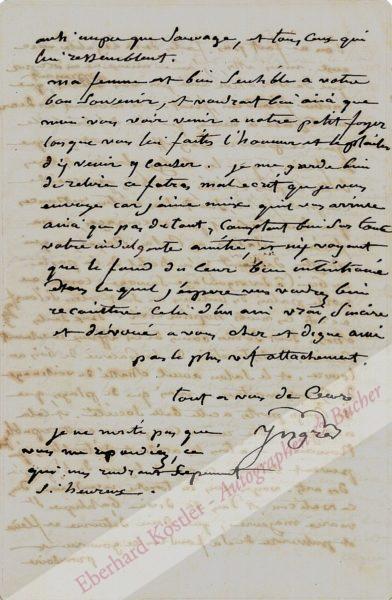 anti unique que Sauvage, et tous ceux qui
lui ressemblent.
ma femme est bien Sensible a votre
bon Souvenir, et voudrait bien ainsi que
moi vous voir venir a notre petit foyer
lorsque vous lui faits l'honneur et le plaisir
d'y venir y causer. je me garde bien
de relire ce fatras mal ecrit que je vous
envoye car j'aime mieux qu'il vous arrive
ainsi que pas du tout, comptant bien Sur toute
votre indulgente amitié, et n'y voyant
que le fond du Coeur bien intentionné
Dans le quel j'espere vous voudrez bien
reconnitre Celui d'un ami vrai, Sincère
et dévoué a vous cher et digne ami
par le plus vif attachement.
tout a vous de Coeur
Ingres
je ne merite pas que
vous me repondiez, ce
qui me rendrait cependant
S. heureux.
Eberhard Köstler - Autographen & Bücher